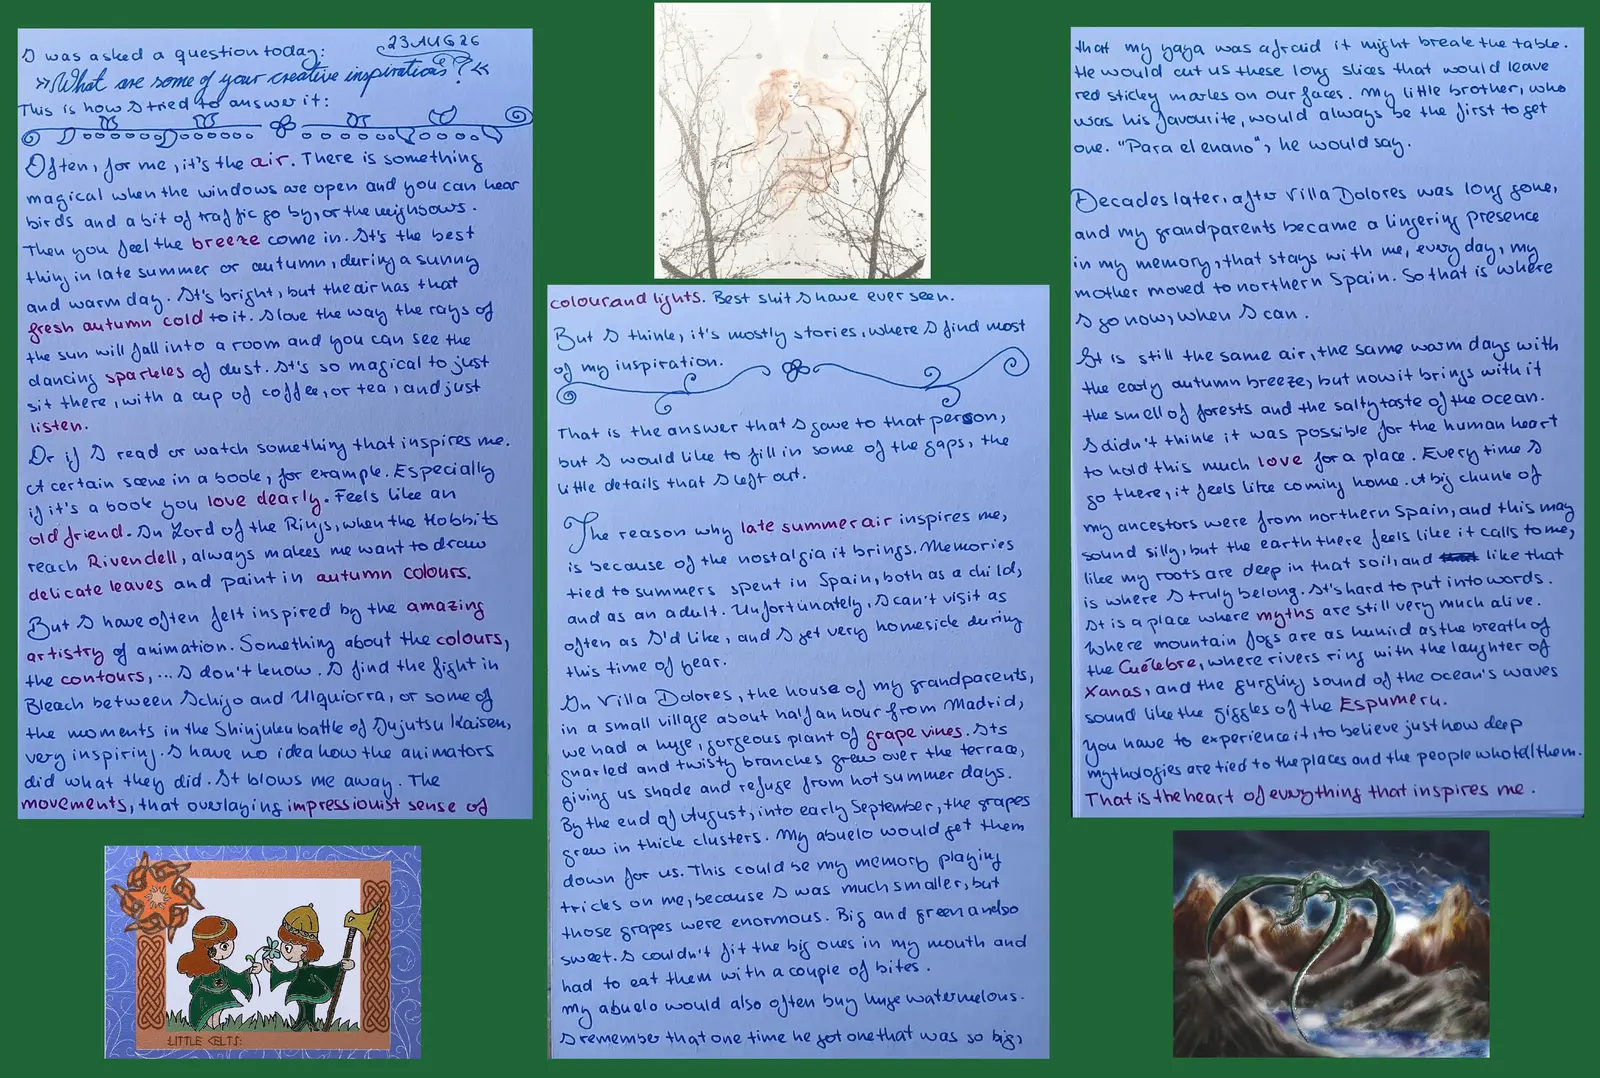 23 AUG 26
I was asked a question today:
»What are some of your creative inspirations?«
This is how I tried to answer it:
Often, for me, it's the air. There is something
magical when the windows are open and you can hear
birds and a bit of traffic go by, or the neighbours.
Then you feel the breeze come in. It's the best
thing in late summer or autumn, during a sunny
and warm day. It's bright, but the air has that
fresh autumn cold to it. I love the way the rays of
the sun will fall into a room and you can see the
dancing sparkles of dust. It's so magical to just
sit there, with a cup of coffee, or tea, and just
listen.
Or if I read or watch something that inspires me.
A certain scene in a book, for example. Especially
if it's a book you love dearly. Feels like an
old friend. In Lord of the Rings, when the Hobbits
reach Rivendell, always makes me want to draw
delicate leaves and paint in autumn colours.
But I have often felt inspired by the amazing
artistry of animation. Something about the colours,
the contours, ... I don't know. I find the fight in
Bleach between Ichigo and Ulquiorra, or some of
the moments in the Shinjuku battle of Jujutsu Kaisen,
very inspiring. I have no idea how the animators
did what they did. It blows me away. The
movements, that overlaying impressionist sense of
colour and lights. Best shit I have ever seen.
But I think, it's mostly stories, where I find most
of my inspiration.
That is the answer that I gave to that person,
but I would like to fill in some of the gaps, the
little details that I left out.
The reason why late summer air inspires me,
is because of the nostalgia it brings. Memories
tied to summers spent in Spain, both as a child,
and as an adult. Unfortunately, I can't visit as
often as I'd like, and I get very homesick during
this time of year.
In Villa Dolores, the house of my grandparents,
in a small village about half an hour from Madrid,
we had a huge, gorgeous plant of grape vines. Its
gnarled and twisty branches grew over the terrace,
giving us shade and refuge from hot summer days.
By the end of August, into early September, the grapes
grew in thick clusters. My abuelo would get them
down for us. This could be my memory playing
tricks on me, because I was much smaller, but
those grapes were enormous. Big and green and so
sweet. I couldn't fit the big ones in my mouth and
had to eat them with a couple of bites.
My abuelo would also often buy huge watermelons.
I remember that one time he got one that was so big,
that my yaya was afraid it might break the table.
He would cut us these long slices that would leave
red sticky marks on our faces. My little brother, who
was his favourite, would always be the first to get
one. "Para el enano", he would say.
Decades later, after Villa Dolores was long gone,
and my grandparents became a lingering presence
in my memory, that stays with me, every day, my
mother moved to northern Spain. So that is where
I go now, when I can.
It is still the same air, the same warm days with
the early autumn breeze, but now it brings with it
the smell of forests and the salty taste of the ocean.
I didn't think it was possible for the human heart
to hold this much love for a place. Every time I
go there, it feels like coming home. A big chunk of
my ancestors were from northern Spain, and this may
sound silly, but the earth there feels like it calls to me,
like my roots are deep in that soil, and like that
is where I truly belong. It's hard to put into words.
It is a place where myths are still very much alive.
Where mountain fogs are as humid as the breath of
the Cuélebre, where rivers ring with the laughter of
Xanas, and the gurgling sound of the ocean's waves
sound like the giggles of the Espumeru.
You have to experience it, to believe just how deep
mythologies are tied to the places and the people who tell them.
That is the heart of everything that inspires me.
LITTLE CELTS: